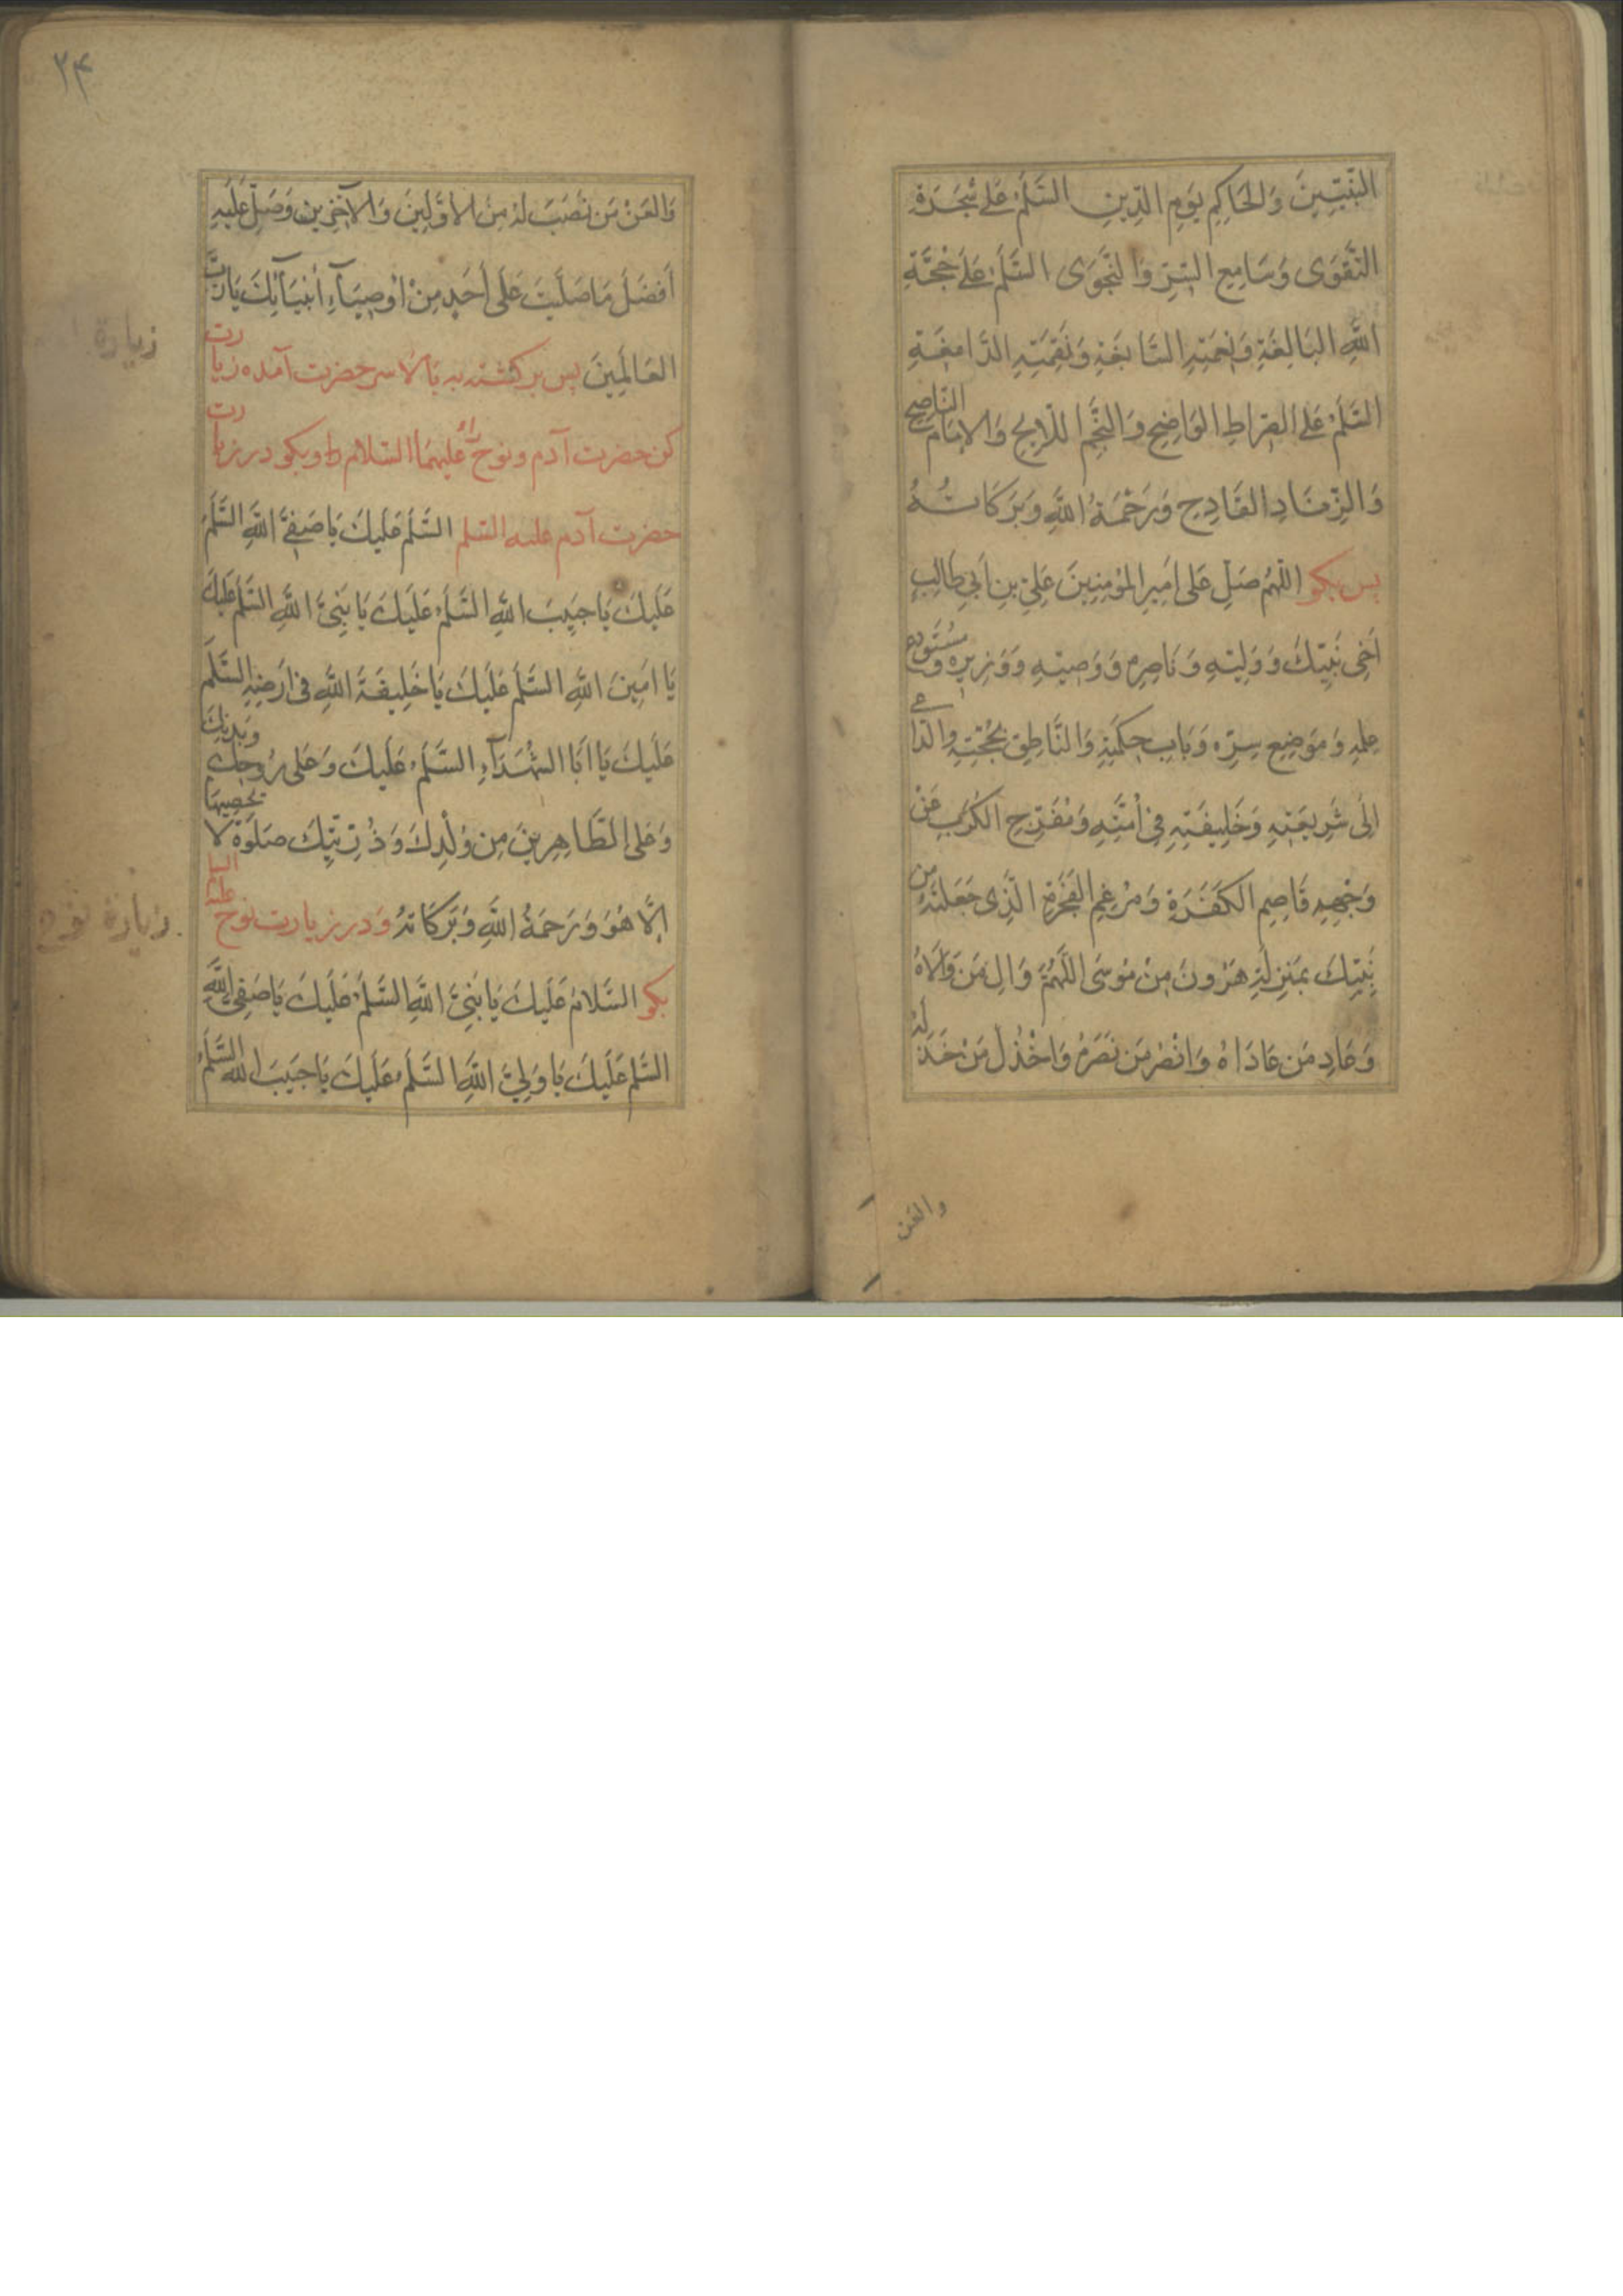 النَّبِيِّينَ وَالحَاكِمِ يَومِ الدِّينِ السَّلَمُ عَلَى شَجَرَةِ
التَّقوَى وَسَامِعِ السِّرِّ وَالنَّجوَى السَّلَمُ عَلَى حُجَّةِ
اللَّهِ البَالِغَةِ وَنِعمَتِهِ السَّابِغَةِ وَنِقمَتِهِ الدَّامِغَةِ
السَّلَمُ عَلَى الصِّرَاطِ الوَاضِحِ وَالنَّجمِ اللَّايِحِ وَالاِمَامِ النَّاصِحِ
وَالزِّنَادِ القَادِحِ وَرَحْمَةُ اللَّهِ وَبَرَكَاتُهُ
پس بكو اللّٰهُمَّ صَلِّ عَلى اَمِيرِ المُؤمِنِينَ عَلِيِّ بنِ اَبِي طَالِبٍ
اَخِى نَبِيِّكَ وَوَلِيِّهِ وَنَاصِرِهِ وَوَصِيِّهِ وَوَزِيرِهِ وَمُستَودَعِ
عِلمِهِ وَمَوضِعِ سِرِّهِ وَبَابِ حِكمَتِهِ وَالنَّاطِقِ بِحُجَّتِهِ وَالدَّاعِى
اِلَى شَرِيعَتِهِ وَخَلِيفَتِهِ فِى اُمَّتِهِ وَمُفَرِّجِ الكَربِ عَنْ
وَجْهِهِ قَاصِمِ الكَفَرَةِ وَمُرْغِمِ الفَجَرَةِ الَّذِى جَعَلتَهُ مِن
نَبِيِّكَ بِمَنزِلَةِ هَرُونَ مِنْ مُوسَى اللَّهُمَّ وَالِ مَن وَالَاهُ
وَعَادِ مَن عَادَاهُ وَانْصُر مَن نَصَرَهُ وَاخْذُل مَنْ خَذَلَهُ
والعن
۲۴
وَالعَنْ مَن نَصَبَ لَهُ مِنَ الاَوَّلِينَ وَالآخِرِينَ وَصَلِّ عَلَيهِ
اَفضَلَ مَا صَلَّيتَ عَلَى اَحَدٍ مِنْ اَوصِيَآءِ اَنبِيَآئِكَ يَارَبَّ
زيارة
العَالَمِينَ پس بر كشته به بالاسر حضرت آمده زيارت
كن حضرت آدم ونوح را عليهما السلام و بكو در زيارت
حضرت آدم عليه السّلم السَّلَمُ عَلَيكَ يَا صَفِيَّ اللَّهِ السَّلَمُ
عَلَيكَ يَا حَبِيبَ اللَّهِ السَّلَمُ عَلَيكَ يَا نَبِىَّ اللَّهِ السَّلَمُ عَلَيكَ
يَا اَمِينَ اللَّهِ السَّلَمُ عَلَيكَ يَا خَلِيفَةَ اللَّهِ فى اَرضِهِ السَّلَمُ
عَلَيكَ يَا اَبَا الشُهَدَآءِ السَّلَمُ عَلَيكَ وَعَلى رُوحِكَ وَبَدَنِكَ
وَعَلى الطَّاهِرِينَ مِن وُلْدِكَ وَذُرِّيَّتِكَ صَلَوةً لَا يُحصِيهَا
اِلَّا هُوَ وَرَحمَةُ اللَّهِ وَبَرَكَاتُهُ وَدر زيارت نوح عليه السلم
زيارة نوح
بكو السَّلامُ عَلَيكَ يَا نَبِىَّ اللَّهِ السَّلَمُ عَلَيكَ يَا صَفِىَّ اللَّهِ
السَّلَمُ عَلَيكَ يَا وَلِيَّ اللَّهِ السَّلَمُ عَلَيكَ يَا حَبِيبَ اللَّهِ السَّلَمُ